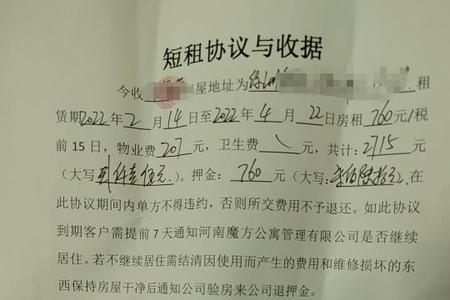 短租协议与收据
今收 屋地址为 租
赁期2022年2月14日至2022年4月22日房租760元/税
前15日，物业费207元，卫生费\元，共计：2715元
（大写： ）。押金：760元（大写： 在
此协议期间内单方不得违约，否则所交费用不予退还。如此协议
到期客户需提前7天通知河南魔方公寓管理有限公司是否继续
居住。若不继续居住需结清因使用而产生的费用和维修损坏的东
西保持房屋干净后通知公司验房来公司退押金。